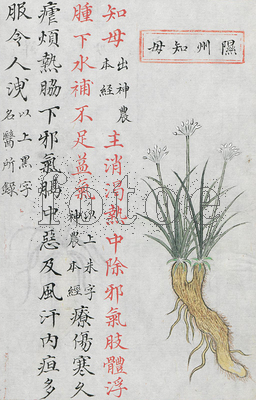 隰州知母
知母出神農本經主消渴熱中除邪氣肢體浮
腫下水補不足益氣以上朱字神農本經療傷寒久
瘧煩熱脇下邪氣膈中惡及風汗內疸多
服令人洩以上黑字名醫所錄